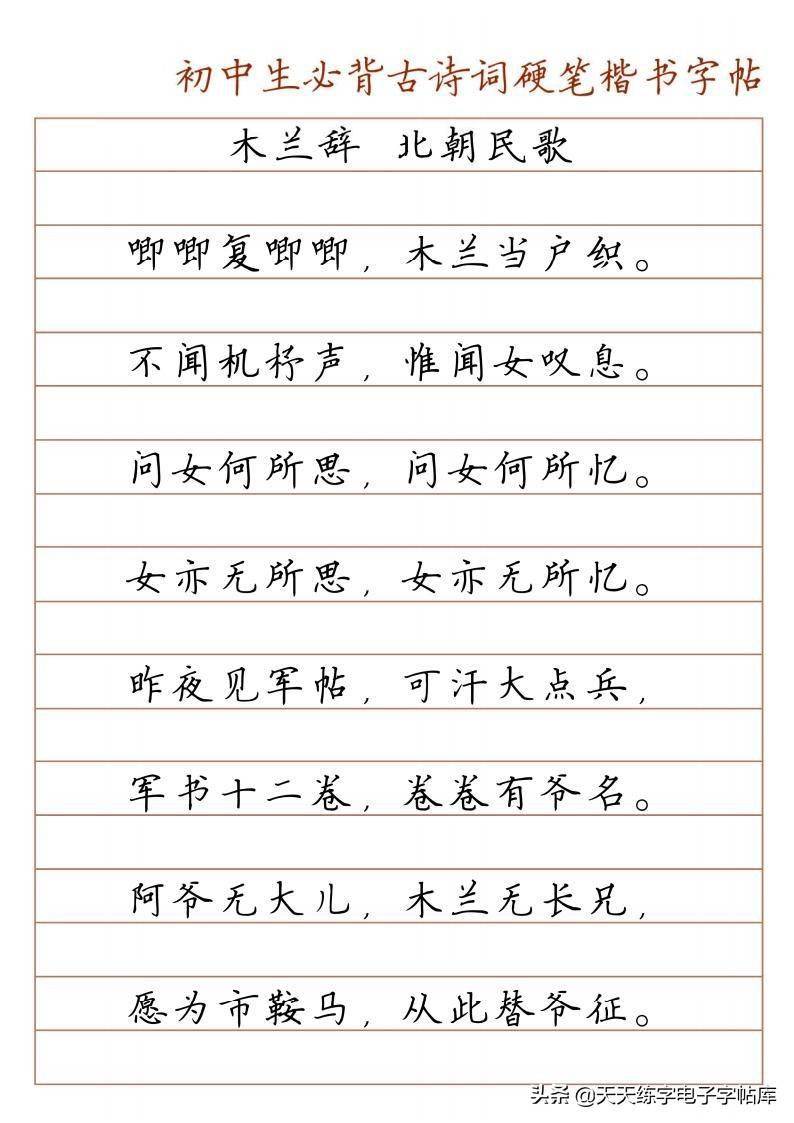 初中生必背古诗词硬笔楷书字帖
木兰辞 北朝民歌
唧唧复唧唧，木兰当户织。
不闻机杼声，惟闻女叹息。
问女何所思，问女何所忆。
女亦无所思，女亦无所忆。
昨夜见军帖，可汗大点兵，
军书十二卷，卷卷有爷名。
阿爷无大儿，木兰无长兄，
愿为市鞍马，从此替爷征。
头条 @天天练字电子字帖库